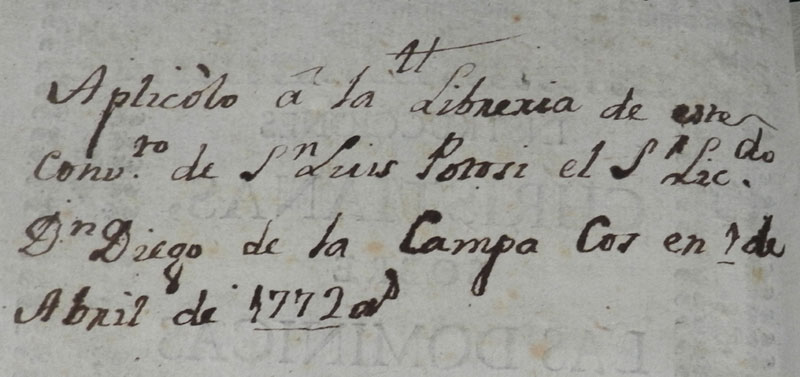 Aplicòlo â la Libreria de este
Conv.to de Sn Luis Potosi el Sr Licdo.
Dn Diego de la Campa Cos en 1 de
Abril de 1772 as
LAS DOMINICAS